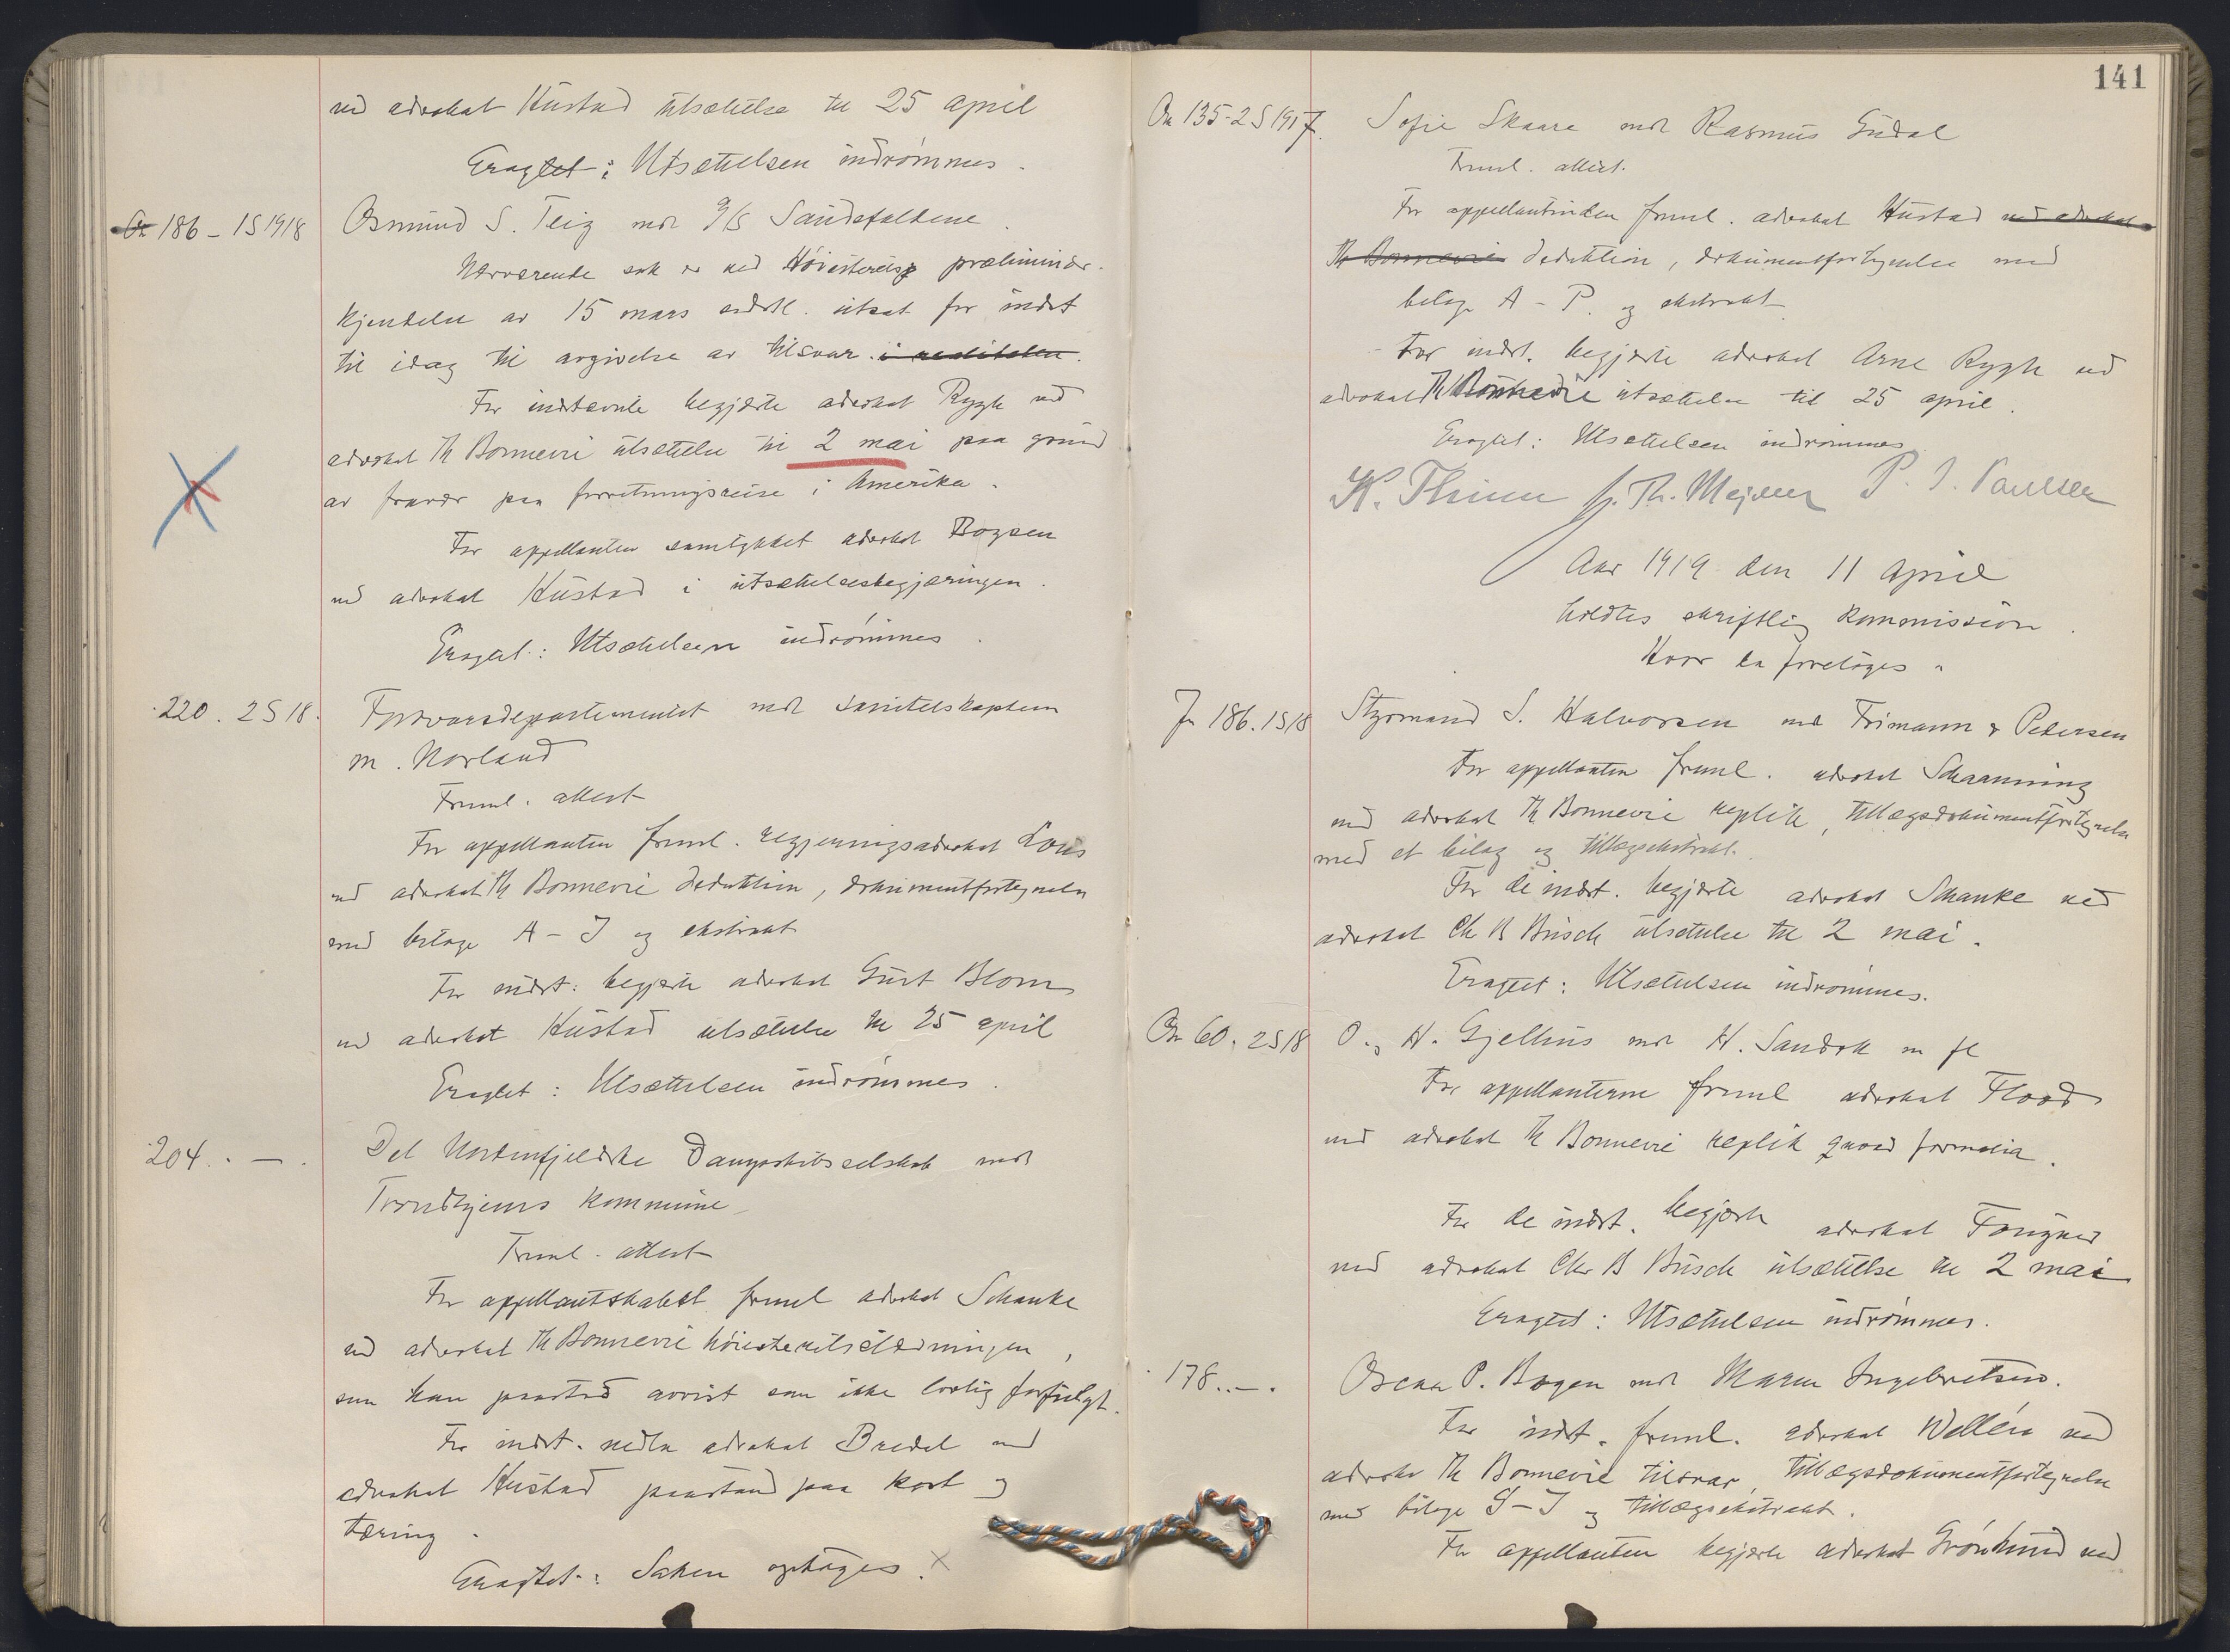 ved advokat Hustad utsættelse til 25 april
Eragtet: Utsættelsen indrømmes.
Or 186 - 1S 1918
Osmund S. Teig mot I/S Sandefaldene
Nærværende sak er ved Høiesterets præliminær-
kjendelse av 15 mars sidstl. utsat for indst
til idag til avgivelse av tilsvar i realiteten.
For indstevnte begjærte advokat Rygh ved
advokat Th Bonnevie utsættelse til 2 mai paa grund
av fravær paa forretningsreise i Amerika.
For appellanten samtykket advokat Boysen
ved advokat Hustad i utsættelsesbegjæringen.
Eragtet: Utsættelsen indrømmes.
220. 2S 18.
Forsvarsdepartementet mot sanitetskaptein
M. Norland
Freml. attest
For appellanten freml. regjeringsadvokat Lous
ved advokat Th Bonnevie deduktion, dokumentfortegnelse
med bilage A - J og ekstrakt
For indst: begjærte advokat Gürt Blom
ved advokat Hustad utsættelse til 25 april
Eragtet: Utsættelsen indrømmes.
204. . — .
Det Nordenfjeldske Dampskibsselskab mot
Trondhjems kommune
Freml. attest
For appellantskabet freml advokat Schanke
ved advokat Th Bonnevie høiesteretsstevningen,
som han paastod avvist som ikke lovlig forfulgt.
For indst. nedla advokat Bredal ved
advokat Hustad paastand paa kost og
tæring.
Eragtet: Saken optages. X
141
On 135-2S 1917.
Sofie Skaare mot Rasmus Gudal
Freml. attest.
For appellantinden freml. advokat Hustad ved advokat
Th Bonnevie deduktion, dokumentfortegnelse med
bilag A - P. og ekstrakt
For indst. begjærte advokat Arne Rygh ved
advokat Th Bonnevie utsættelse til 25 april.
Eragtet: Utsættelsen indrømmes
K. Thinn Th. Mejdell P. I. Paulsen
Aar 1919 den 11 april
holdtes skriftlig kommission.
Hvor da foretoges:
Jn 186. 1S 18
Styrmand S. Halvorsen mot Frimann & Pedersen
For appellanten freml. advokat Schaanning
ved advokat Th Bonnevie replik, tillægsdokumentfortegnelse
med et bilag og tillægsekstrakt.
For de indst. begjærte advokat Schanke ved
advokat Chr B Busch utsættelse til 2 mai.
Eragtet: Utsættelsen indrømmes.
On 60. 2S 18
O. H. Gjellhus mot H. Sandok m fl
For appellanterne freml advokat Flood
ved advokat Th Bonnevie replik quoad formalia.
For de indst. begjærte advokat Fougner
ved advokat Chr B Busch utsættelse til 2 mai
Eragtet: Utsættelsen indrømmes.
178. . — .
Oscar P. Bogen mot Maren Ingebretsen.
For indst. freml. advokat Wellén ved
advokat Th Bonnevie tilsvar, tillægsdokumentfortegnelse
med bilage S - J og tillægsekstrakt.
For appellanten begjærte advokat Grønlund ved